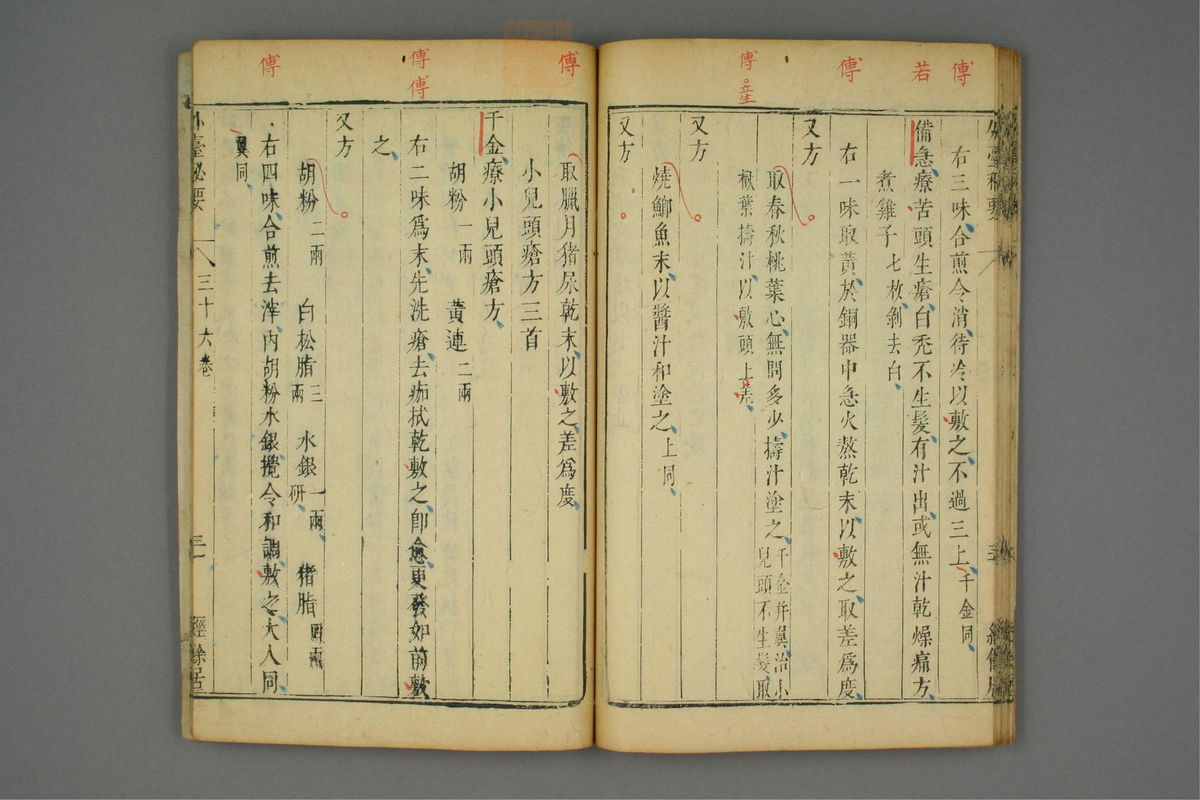 傅
若
傅
傅
㽵
右三味合煎令消待冷以敷之不過三上千金同
備急療苦頭生瘡白禿不生髮有汁出或無汁乾燥痛方
煮雞子七枚剝去白
右一味取黃於銅器中急火熬乾末以敷之取差爲度
又方
取春秋桃葉心無問多少擣汁塗之千金并翼治小
兒頭不生髮取
楸葉擣汁以敷頭上
又方
燒鯽魚末以醬汁和塗之上同
又方
傅
傅
傅
傅
取臘月猪屎乾末以敷之差爲度
小兒頭瘡方三首
千金療小兒頭瘡方
胡粉一兩 黃連二兩
右二味爲末先洗瘡去痂拭乾敷之卽愈更發如前敷
之
又方
胡粉二兩 白松脂三兩 水銀一兩研 猪脂四兩
右四味合煎去滓內胡粉水銀攪令和調敷之大人同
翼同
外臺秘要 三十六卷 經餘居